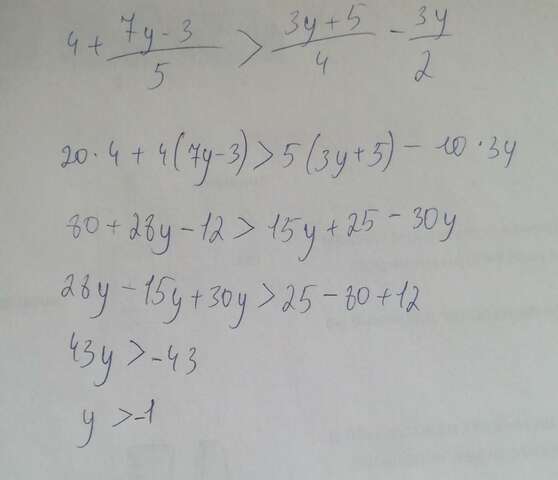 4 + (7y - 3)/5 > (3y + 5)/4 - 3y/2
20 · 4 + 4(7y - 3) > 5(3y + 5) - 10 · 3y
80 + 28y - 12 > 15y + 25 - 30y
28y - 15y + 30y > 25 - 80 + 12
43y > -43
y > -1